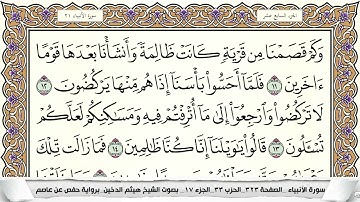 الجزء السابع عشر
سورة الأنبياء ٢١
وَكَمْ قَصَمْنَا مِن قَرْيَةٍ كَانَتْ ظَالِمَةً وَأَنشَأْنَا بَعْدَهَا قَوْمًا
ءَاخَرِينَ ١١ فَلَمَّآ أَحَسُّوا۟ بَأْسَنَآ إِذَا هُم مِّنْهَا يَرْكُضُونَ ١٢
لَا تَرْكُضُوا۟ وَٱرْجِعُوٓا۟ إِلَىٰ مَآ أُتْرِفْتُمْ فِيهِ وَمَسَٰكِنِكُمْ لَعَلَّكُمْ
تُسْـَٔلُونَ ١٣ قَالُوا۟ يَٰوَيْلَنَآ إِنَّا كُنَّا ظَٰلِمِينَ ١٤ فَمَا زَالَت تِّلْكَ
سورة الأنبياء _ الصفحة ٣٢٣ _ الحزب ٣٣ _ الجزء ١٧ _ بصوت الشيخ هيثم الدخين _ برواية حفص عن عاصم